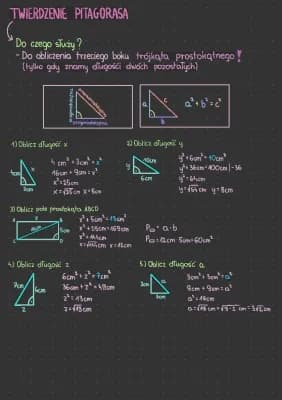 TWIERDZENIE PITAGORASA
Do czego służy?
- Do obliczenia trzeciego boku trójkąta prostokątnego!
(tylko gdy znamy długości dwóch pozostałych)
przyprostokątna
przeciwprostokątna
przyprostokątna
a
c
b
a² + b² = c²
1) Oblicz długość x
4cm
x
3cm
4cm² + 3cm² = x²
16cm + 9cm = x²
x² = 25cm
x = √25cm x = 5cm
2) Oblicz długość y
y
10cm
6cm
y² + 6cm² = 10cm²
y² + 36cm = 100cm | -36
y² = 64cm
y = √64cm y = 8cm
3) Oblicz pole prostokąta ABCD
x² + 5cm² = 13cm²
x² + 25cm = 169cm
x² = 144cm
x = √144cm x = 12cm
P▭ = a · b
P▭ = 12cm · 5cm = 60cm²
4) Oblicz długość z
7cm
6cm
z
6cm² + z² = 7cm²
36cm + z² = 49cm
z² = 13cm
z = √13cm
5) Oblicz długość a
3cm
a
3cm
3cm² + 3cm² = a²
9cm + 9cm = a²
a² = 18cm
a = √18cm = √9·2cm = 3√2cm